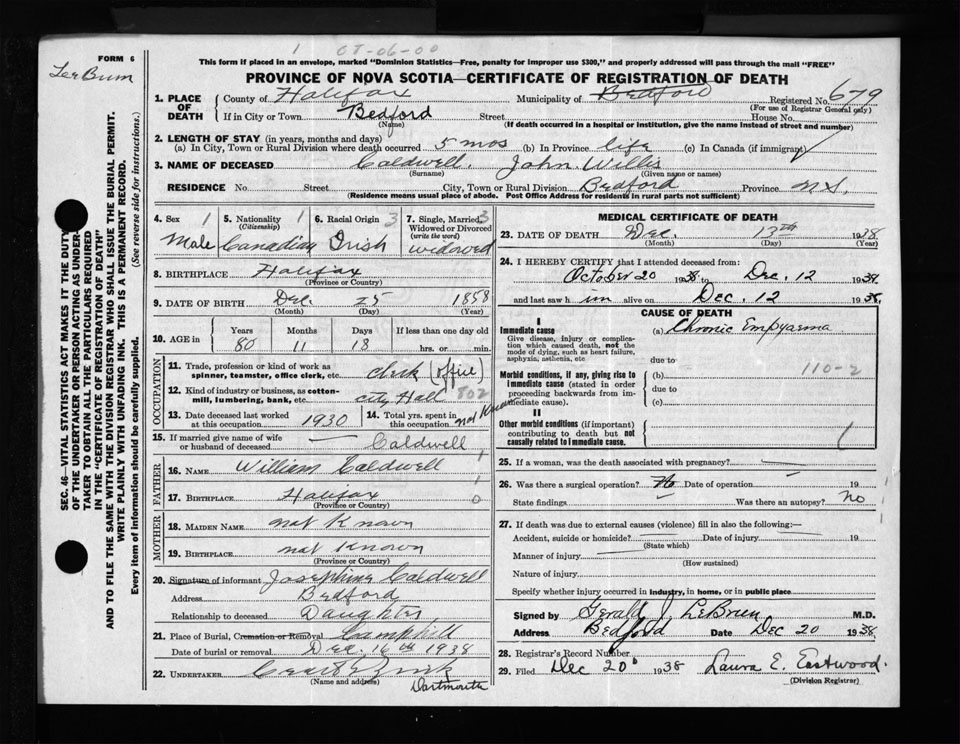 1 CT-06-00
FORM 6
LeeBrun
This form if placed in an envelope, marked "Dominion Statistics—Free, penalty for improper use $300," and properly addressed will pass through the mail "FREE"
PROVINCE OF NOVA SCOTIA—CERTIFICATE OF REGISTRATION OF DEATH
1. PLACE OF DEATH County of Halifax Municipality of Bedford Registered No. 679
(For use of Registrar General only)
If in City or Town Bedford Street House No.
(Name) (If death occurred in a hospital or institution, give the name instead of street and number)
2. LENGTH OF STAY (in years, months and days)
(a) In City, Town or Rural Division where death occurred 5 mos (b) In Province life (c) In Canada (if immigrant)
3. NAME OF DECEASED Caldwell, John Willis
(Surname) (Given name or names)
RESIDENCE No. Street City, Town or Rural Division Bedford Province N.S.
(Residence means usual place of abode. Post Office Address for residents in rural parts not sufficient)
SEC. 46—VITAL STATISTICS ACT MAKES IT THE DUTY
OF THE UNDERTAKER OR PERSON ACTING AS UNDER-
TAKER TO OBTAIN ALL THE PARTICULARS REQUIRED
IN THE "CERTIFICATE OF REGISTRATION OF DEATH"
AND TO FILE THE SAME WITH THE DIVISION REGISTRAR WHO SHALL ISSUE THE BURIAL PERMIT.
WRITE PLAINLY WITH UNFADING INK. THIS IS A PERMANENT RECORD.
Every item of information should be carefully supplied. (See reverse side for instructions.)
4. Sex 1 5. Nationality 1 6. Racial Origin 3 7. Single, Married, 3
(Citizenship) Widowed or Divorced
(write the word)
Male Canadian Irish widowed
8. BIRTHPLACE Halifax
(Province or Country)
9. DATE OF BIRTH Dec. 25 1858
(Month) (Day) (Year)
10. AGE in Years Months Days If less than one day old
80 11 18 hrs. or min.
OCCUPATION
11. Trade, profession or kind of work as
spinner, teamster, office clerk, etc. clerk (office)
12. Kind of industry or business, as cotton-
mill, lumbering, bank, etc. City Hall 802
13. Date deceased last worked
at this occupation. 1930
14. Total yrs. spent in
this occupation not Known
15. If married give name of wife
or husband of deceased — Caldwell
FATHER
16. NAME William Caldwell
17. BIRTHPLACE Halifax
(Province or Country)
MOTHER
18. MAIDEN NAME not Known
19. BIRTHPLACE not Known
(Province or Country)
20. Signature of informant Josephine Caldwell
Address Bedford
Relationship to deceased Daughter
21. Place of Burial, Cremation or Removal Camphill
Date of burial or removal Dec. 16th 1938
22. UNDERTAKER
(Name and address) Dartmouth
MEDICAL CERTIFICATE OF DEATH
23. DATE OF DEATH Dec. 13th 1938
(Month) (Day) (Year)
24. I HEREBY CERTIFY that I attended deceased from:
October 20 1938 to Dec. 12 1938
and last saw him alive on Dec. 12 1938
CAUSE OF DEATH
I
Immediate cause (a) Chronic Empyaema
Give disease, injury or complica-
tion which caused death, not the
mode of dying, such as heart failure,
asphyxia, asthenia, etc
due to
Morbid conditions, if any, giving rise to
immediate cause (stated in order
proceeding backwards from im-
mediate cause).
(b) 110-2
due to
(c)
II
Other morbid conditions (if important)
contributing to death but not
causally related to immediate cause.
25. If a woman, was the death associated with pregnancy? —
26. Was there a surgical operation? No Date of operation — 19
State findings — Was there an autopsy? No
27. If death was due to external causes (violence) fill in also the following:—
Accident, suicide or homicide? Date of injury 19
(State which)
Manner of injury
(How sustained)
Nature of injury
Specify whether injury occurred in industry, in home, or in public place
Signed by Gerald J. LeBrun M.D.
Address Bedford Date Dec 20 1938
28. Registrar's Record Number
29. Filed Dec 20 1938 Laura E. Eastwood.
(Division Registrar)